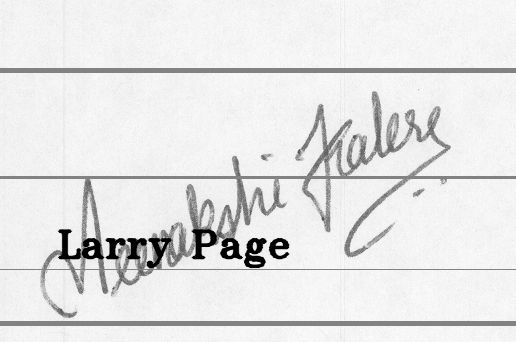 Meenakshi Kalere
Larry Page